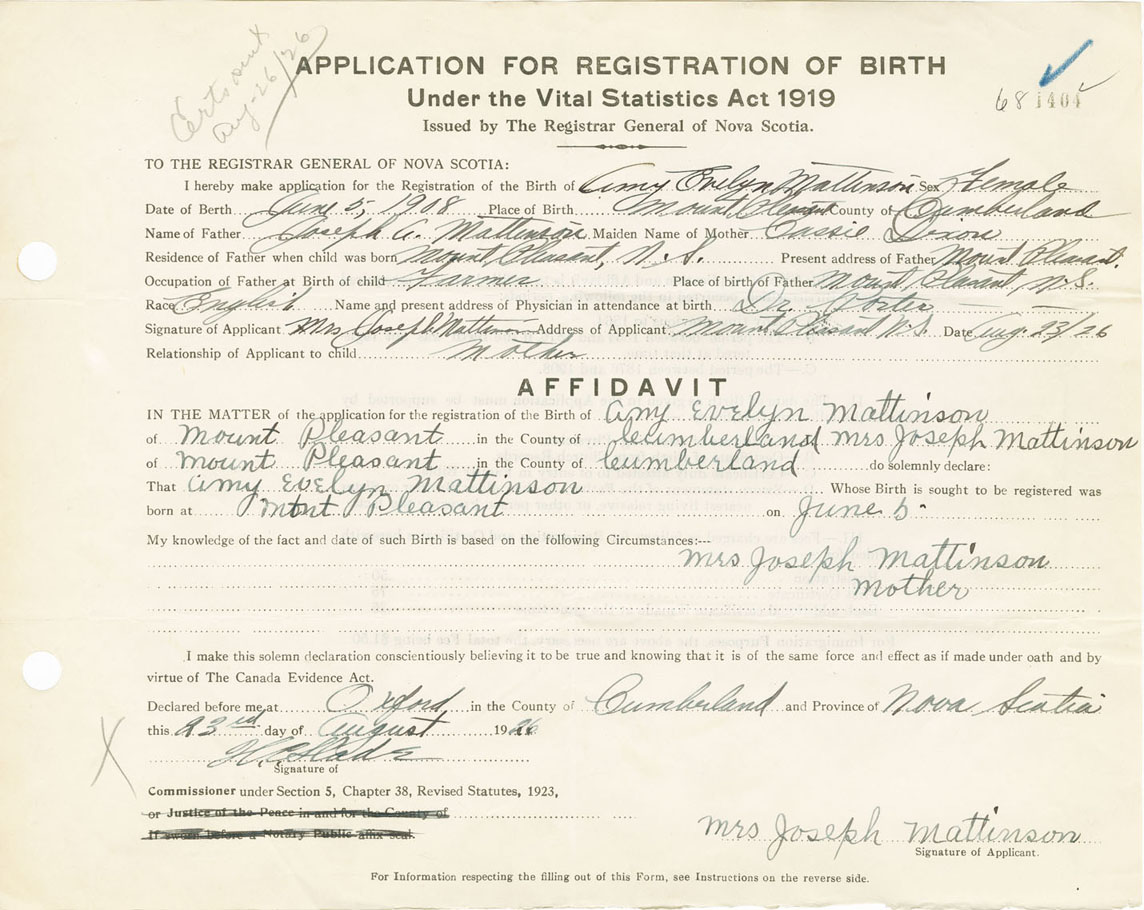 Cert sent
Aug-26/26
APPLICATION FOR REGISTRATION OF BIRTH
Under the Vital Statistics Act 1919
68 1404
Issued by The Registrar General of Nova Scotia.
TO THE REGISTRAR GENERAL OF NOVA SCOTIA:
I hereby make application for the Registration of the Birth of Amy Evelyn Mattinson Sex Female
Date of Berth June 5, 1908 Place of Birth Mount Pleasant County of Cumberland
Name of Father Joseph A. Mattinson Maiden Name of Mother Cassie Dixon
Residence of Father when child was born Mount Pleasant, N. S. Present address of Father Mount Pleasant.
Occupation of Father at Birth of child Farmer Place of birth of Father Mount Pleasant, N.S.
Race English Name and present address of Physician in attendance at birth Dr.
Signature of Applicant Mrs Joseph Mattinson Address of Applicant Mount Pleasant N.S. Date Aug. 23/26
Relationship of Applicant to child Mother
AFFIDAVIT
IN THE MATTER of the application for the registration of the Birth of Amy Evelyn Mattinson
of Mount Pleasant in the County of Cumberland Mrs Joseph Mattinson
of Mount Pleasant in the County of Cumberland do solemnly declare:
That Amy Evelyn Mattinson Whose Birth is sought to be registered was
born at Mtnt Pleasant on June 5-
My knowledge of the fact and date of such Birth is based on the following Circumstances:--
Mrs Joseph Mattinson
Mother
I make this solemn declaration conscientiously believing it to be true and knowing that it is of the same force and effect as if made under oath and by
virtue of The Canada Evidence Act.
Declared before me at Oxford in the County of Cumberland and Province of Nova Scotia
this 23rd day of August 1926
Signature of
Commissioner under Section 5, Chapter 38, Revised Statutes, 1923,
or Justice of the Peace in and for the County of
If sworn before a Notary Public affix seal.
Mrs Joseph Mattinson
Signature of Applicant.
For Information respecting the filling out of this Form, see Instructions on the reverse side.